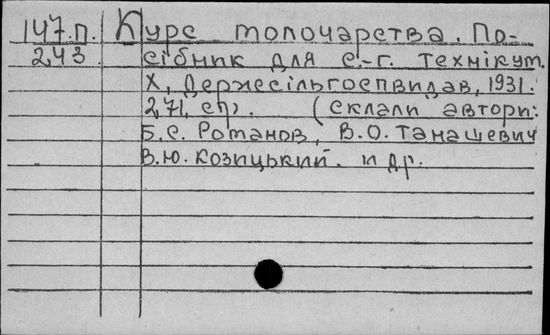 147.П. Курс молочарства. По-
243 сібник для с.-г. технікум.
Х, Держсільгоспвидав, 1931.
271 ст). (склали автори:
Б.С. Романов, В.О. Танашевич
В.Ю. Козицький. и др.